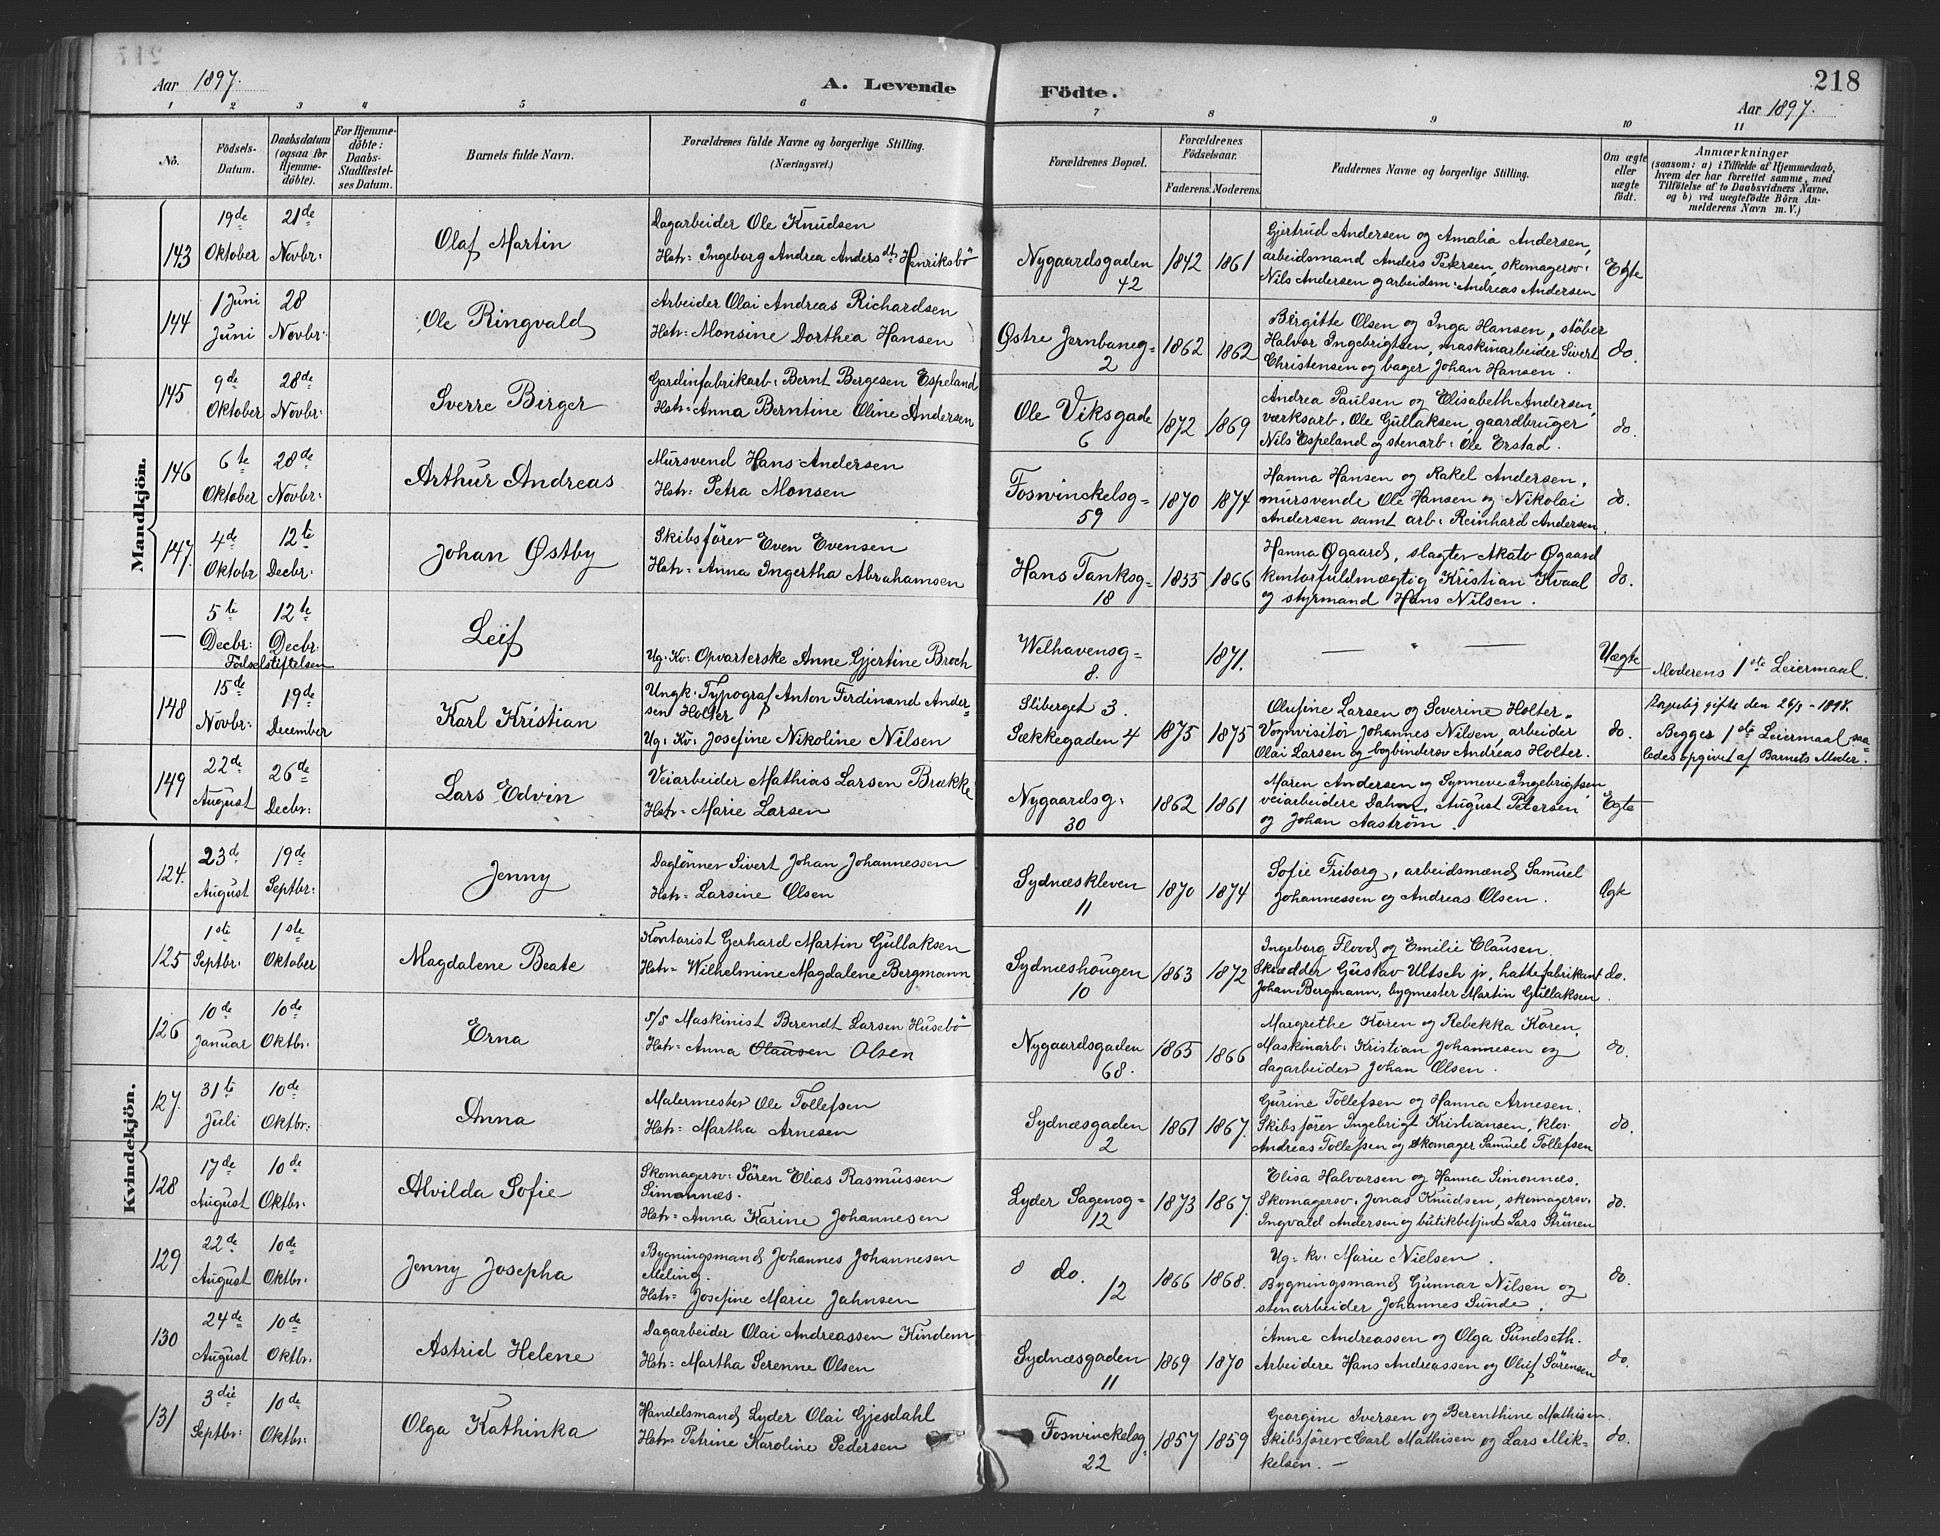 Aar 1897.
A. Levende Fødte.
218
Aar 1897.
1 2 3 4 5 6 7 8 9 10 11
No.
Fødsels-Datum.
Daabsdatum (ogsaa for Hjemmedøbte).
For Hjemmedøbte: Daabs-Stadfæstelses Datum.
Barnets fulde Navn.
Forældrenes fulde Navne og borgerlige Stilling.
(Næringsvei.)
Forældrenes Bopæl.
Forældrenes Fødselsaar.
Faderens. Moderens.
Faddernes Navne og borgerlige Stilling.
Om ægte eller uægte født.
Anmærkninger
(saasom: a) i Tilfælde af Hjemmedaab, hvem der har forrettet samme, med Tilføielse af to Daabsvidners Navne, og b) ved uægtefødte Børn Anmelderens Navn m. V.)
Mandkjön.
143 19de Oktober 21de Novbr: Olaf Martin
Dagarbeider Ole Knudsen
Hstr: Ingeborg Andrea Andersdtr Henriksbö
Nygaardsgaden 42 1842 1861
Gjertrud Andersen og Amalia Andersen,
arbeidsmand Anders Petersen, skomagersv:
Nils Andersen og arbeidsm: Andreas Andersen
Egte
144 1 Juni Juni 28 Novbr: Ole Ringvald
Arbeider Olai Andreas Richardsen
Hstr: Monsine Dorthea Hansen
Østre Jernbaneg= 2 1862 1862
Birgitte Olsen og Inga Hansen, støber
Halvor Ingebrigtsen, maskinarbeider Sivert
Christensen og bager Johan Hansen.
do.
145 9de Oktober 28de Novbr: Sverre Birger
Gardinfabrikarb: Bernt Bergesen Espeland
Hstr: Anna Berntine Oline Andersen
Ole Viksgade 6 1872 1869
Andrea Paulsen og Elisabeth Andersen,
værksarb. Ole Gullaksen, gaardbruger
Nils Espeland og stenarb: Ole Erstad.
do.
146 6te Oktober 28de Novbr: Arthur Andreas
Mursvend Hans Andersen
Hstr: Petra Monsen
Foswinckelsg= 59 1870 1874
Hanna Hansen og Rakel Andersen,
mursvende Ole Hansen og Nikolai
Andersen samt arb: Reinhard Andersen
do.
147. 4de Oktobr 12te Decbr: Johan Østby
Skibsfører Even Evensen
Hstr: Anna Ingertha Abrahamsen
Hans Tanksg= 18 1855 1866
Hanna Øgaard, slagter Akato Øgaard
kontorfuldmægtig Kristian Kvaal
og styrmand Hans Nilsen.
do.
— 5te Decbr: 12te Decbr: Fødselstiftelsen Leif
Ug: Kv: Opvarterske Anne Gjertine Broch
Welhavensg= 8. 1871.
— " —
Uægte
Moderens 1ste Leiermaal.
148 15de Novbr: 19de December Karl Kristian
Ungk: Typograf Anton Ferdinand Ander-
sen Holter
Ug: Kv: Josefine Nikoline Nilsen
Sliberget 3.
Sækkegaden 4 1875 1875
Olufine Larsen og Severine Holter.
Vognvisitør Johannes Nilsen, arbeider
Olai Larsen og bogbindersv Andreas Holter.
do.
gifte den 26/3 - 1898.
Begges 1ste Leiermaal saa-
ledes opgivet af Barnets Moder.
149 22de August 26de Decbr: Lars Edvin
Veiarbeider Mathias Larsen Brække
Hstr: Marie Larsen
Nygaardsg: 30 1862 1861
Maren Andersen og Synneve Ingebrigtsen
veiarbeidere Dahm, August Petersen
og Johan Aaström.
Egte
Kvindekjön.
124. 23de August 19de Septbr: Jenny
Daglønner Sivert Johan Johannessen
Hstr: Larsine Olsen
Sydnæskleven 11 1870 1874
Sofie Friborg, arbeidsmænd Samuel
Johannessen og Andreas Olsen.
Egte
125 1ste Septbr: 1ste Oktober Magdalene Beate
Kontorist Gerhard Martin Gullaksen
Hstr: Wilhelmine Magdalene Bergmann
Sydnæshougen 10 1863 1872
Ingeborg Flood og Emilie Clausen.
Skrædder Gustav Ultsch jr, hattefabrikant
Johan Bergmann, bygmester Martin Gullaksen.
do.
126 10de Januar 10de Oktbr: Erna
S/S Maskinist Berendt Larsen Husebö
Hstr: Anna Olausen Olsen
Nygaardsgaden 68. 1865 1866
Margrethe Kåren og Rebekka Kåren,
Maskinarb: Kristian Johannesen og
dagarbeider Johan Olsen.
do.
127. 31te Juli 10de Oktbr: Anna
Malermester Ole Tollefsen
Hstr: Martha Arnesen
Sydnæsgaden 2 1861 1867.
Gurine Tollefsen og Hanna Arnesen.
Skibsfører Ingebrigt Kristiansen, kler
Andreas Tollefsen og skomager Samuel Tollefsen
do.
128 17de August 10de Oktbr: Alvilda Sofie
Skomagersv: Sören Elias Rasmussen
Simonnæs.
Hstr: Anna Karine Johannesen
Lyder Sagensg= 12 1873 1867.
Elisa Halvorsen og Hanna Simonnæs.
Skomagersv: Jonas Knudsen, skomagersv:
Ingvald Andersen og butikbetjent Lars Stünen
do.
129 22de August 10de Oktbr: Jenny Josepha
Bygningsmand Johannes Johannesen
Meling.
Hstr: Josefine Marie Jahnsen
do. 12 1866 1868.
Ug: kv: Marie Nielsen.
Bygningsmand Gunnar Nilsen og
stenarbeider Johannes Sunde.
do.
130 24de August 10de Oktbr: Astrid Helene
Dagarbeider Olai Andreassen Kindem
Hstr: Martha Serenne Olsen
Sydnæsgaden 11 1869 1870
Anne Andreassen og Olga Sundseth.
Arbeidere Hans Andreassen og Oluf Sörensen
do.
131 3die Septbr: 10de Oktbr: Olga Kathinka
Handelsmand Lyder Olai Gjesdahl
Hstr: Petrine Karoline Pedersen
Foswinckelsg. 22 1857 1859
Georgine Iversen og Berenthine Mathisen.
Skibsfører Carl Mathisen og Lars Mik-
kelsen. —
do.